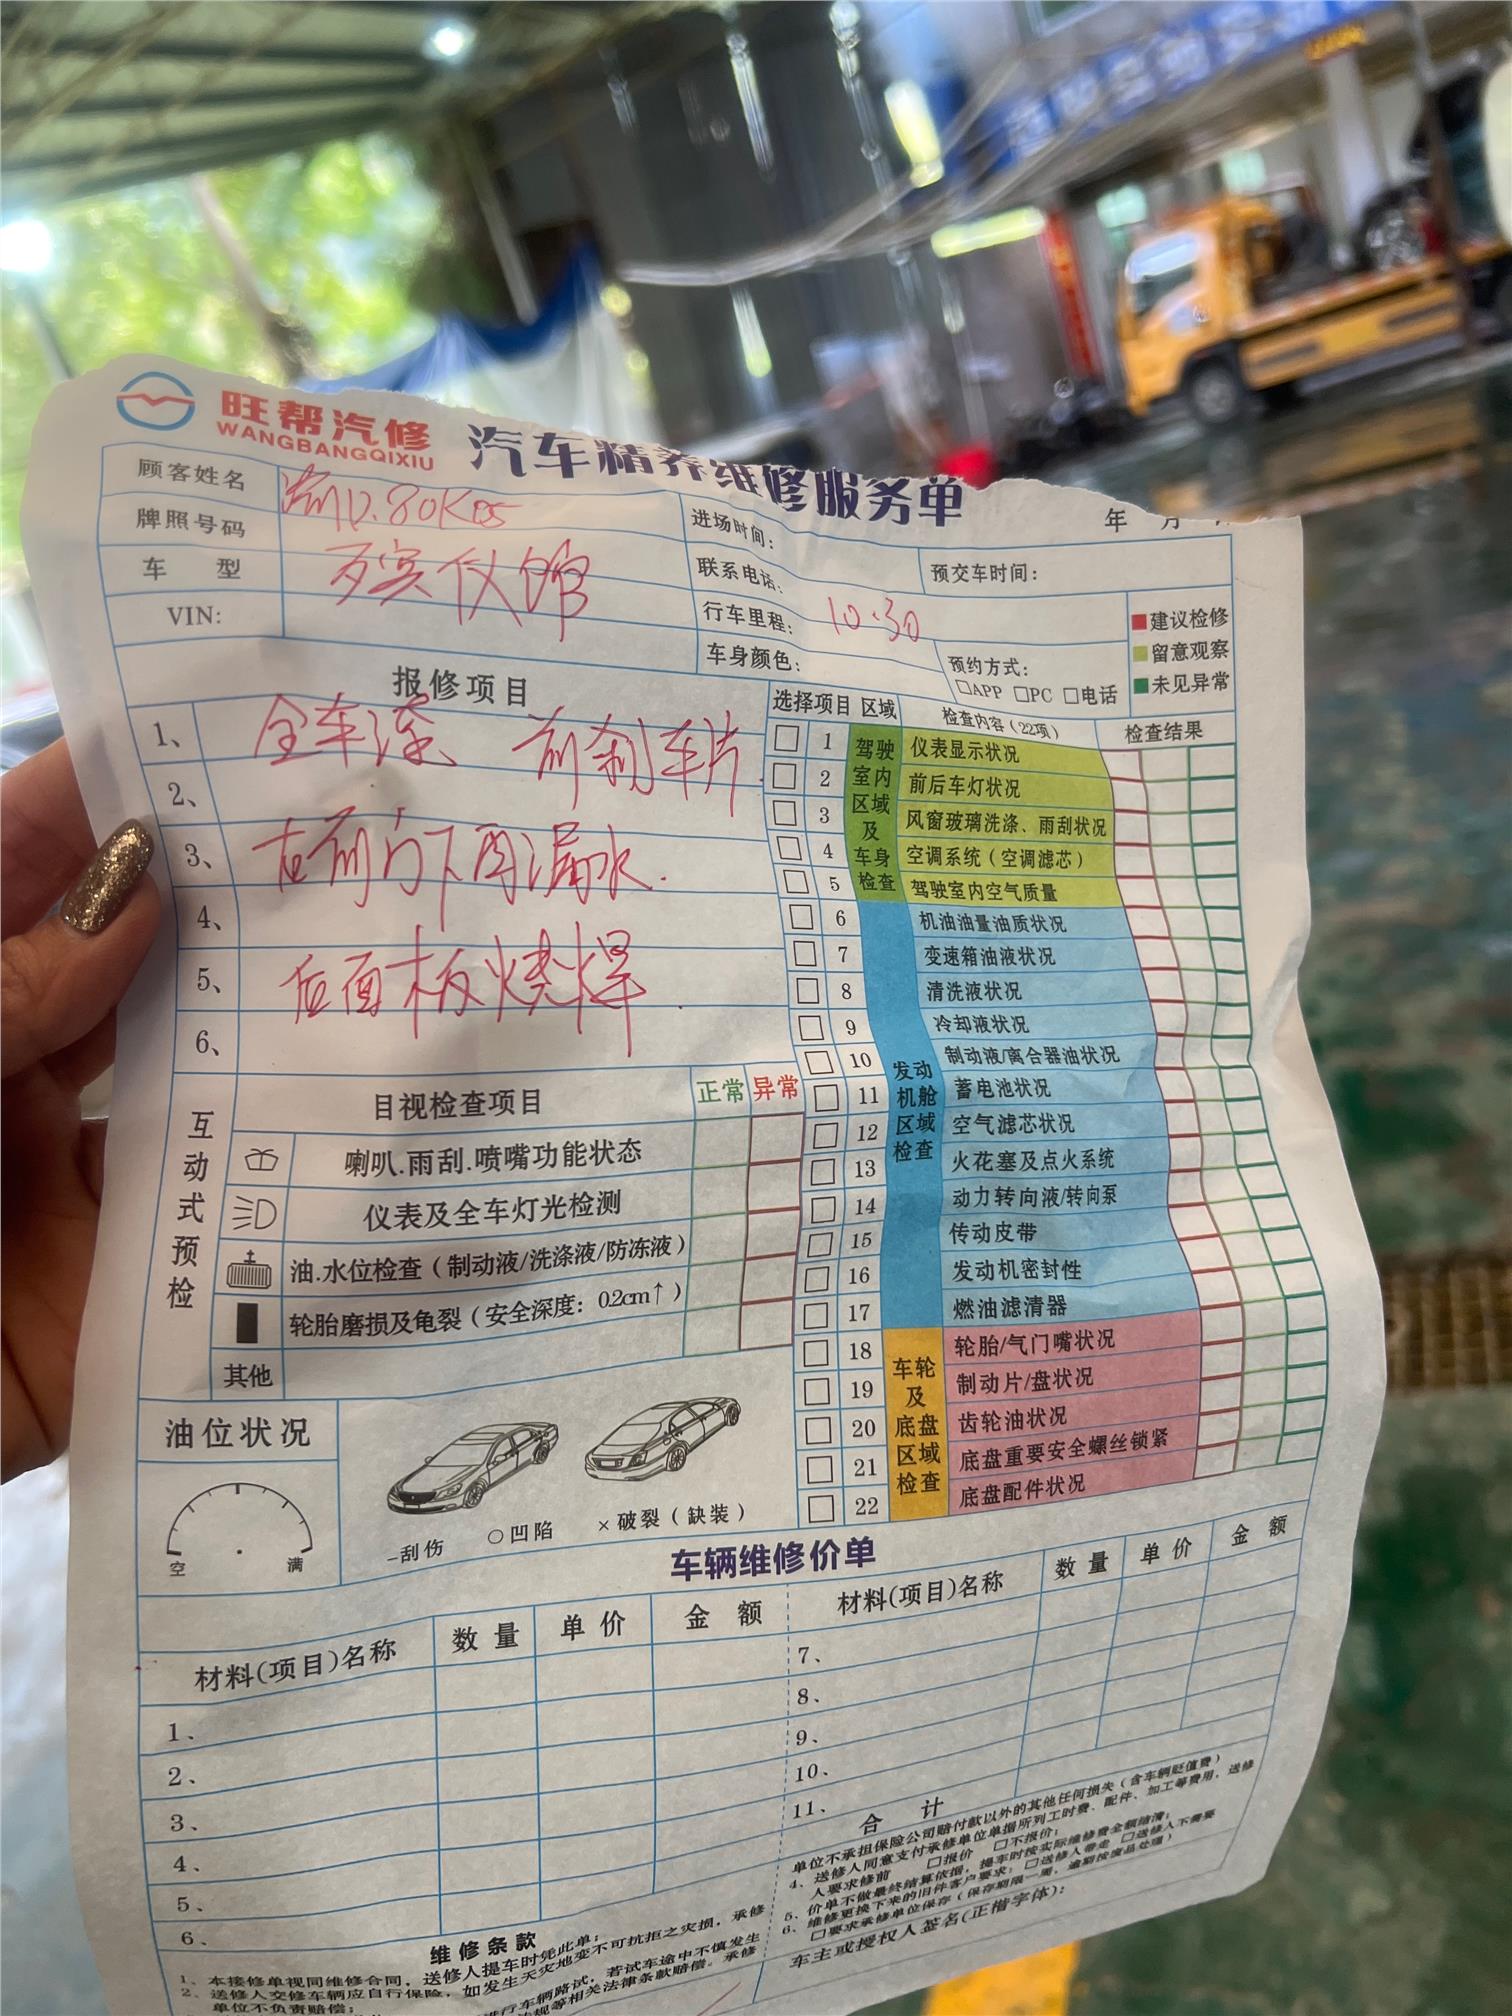 旺帮汽修
WANGBANGQIXIU
汽车精养维修服务单
年 月
顾客姓名
牌照号码
车 型
殡仪馆
VIN:
进场时间:
联系电话:
预交车时间:
行车里程:
10:30
车身颜色:
预约方式:
□APP □PC □电话
建议检修
留意观察
未见异常
报修项目
1、
全车漆 前刹车片
2、
3、
右前门下雨漏水.
4、
5、
后面板烧焊.
6、
选择项目 区域 检查内容(22项) 检查结果
驾驶室内区域及车身检查
1 仪表显示状况
2 前后车灯状况
3 风窗玻璃洗涤、雨刮状况
4 空调系统(空调滤芯)
5 驾驶室内空气质量
发动机舱区域检查
6 机油油量油质状况
7 变速箱油液状况
8 清洗液状况
9 冷却液状况
10 制动液/离合器油状况
11 蓄电池状况
12 空气滤芯状况
13 火花塞及点火系统
14 动力转向液/转向泵
15 传动皮带
16 发动机密封性
17 燃油滤清器
车轮及底盘区域检查
18 轮胎/气门嘴状况
19 制动片/盘状况
20 齿轮油状况
21 底盘重要安全螺丝锁紧
22 底盘配件状况
互动式预检
目视检查项目 正常 异常
喇叭.雨刮.喷嘴功能状态
仪表及全车灯光检测
油.水位检查(制动液/洗涤液/防冻液)
轮胎磨损及龟裂(安全深度: 0.2cm↑)
其他
油位状况
空 满
-刮伤 ○凹陷 ×破裂(缺装)
车辆维修价单
材料(项目)名称 数量 单价 金额
材料(项目)名称 数量 单价 金额
1、
2、
3、
4、
5、
6、
7、
8、
9、
10、
11、
合 计
维修条款
1、本接修单视同维修合同,送修人提车时凭此单;
2、送修人交修车辆应自行保险,如发生天灾地变不可抗拒之灾损,承修
单位不负责赔偿;
进行车辆路试,若试车途中不慎发生
规等相关法律条款赔偿。承修
单位不承担保险公司赔付款以外的其他任何损失(含车辆贬值费)
4、送修人同意支付承修单位单据所列工时费、配件、加工等费用,送修
人要求修前 □报价 □不报价;
5、价单不做最终结算依据,提车时按实际维修费全额结清;
6、维修更换下来的旧件客户要求: □送修人带走 □送修人不需要
□要求承修单位保存(保存期限一周,逾期按废品处理)
车主或授权人签名(正楷字体):